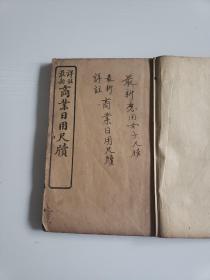 最新
詳註
商業日用尺牘
最新應用女子尺牘
最新
詳註
商業日用尺牘